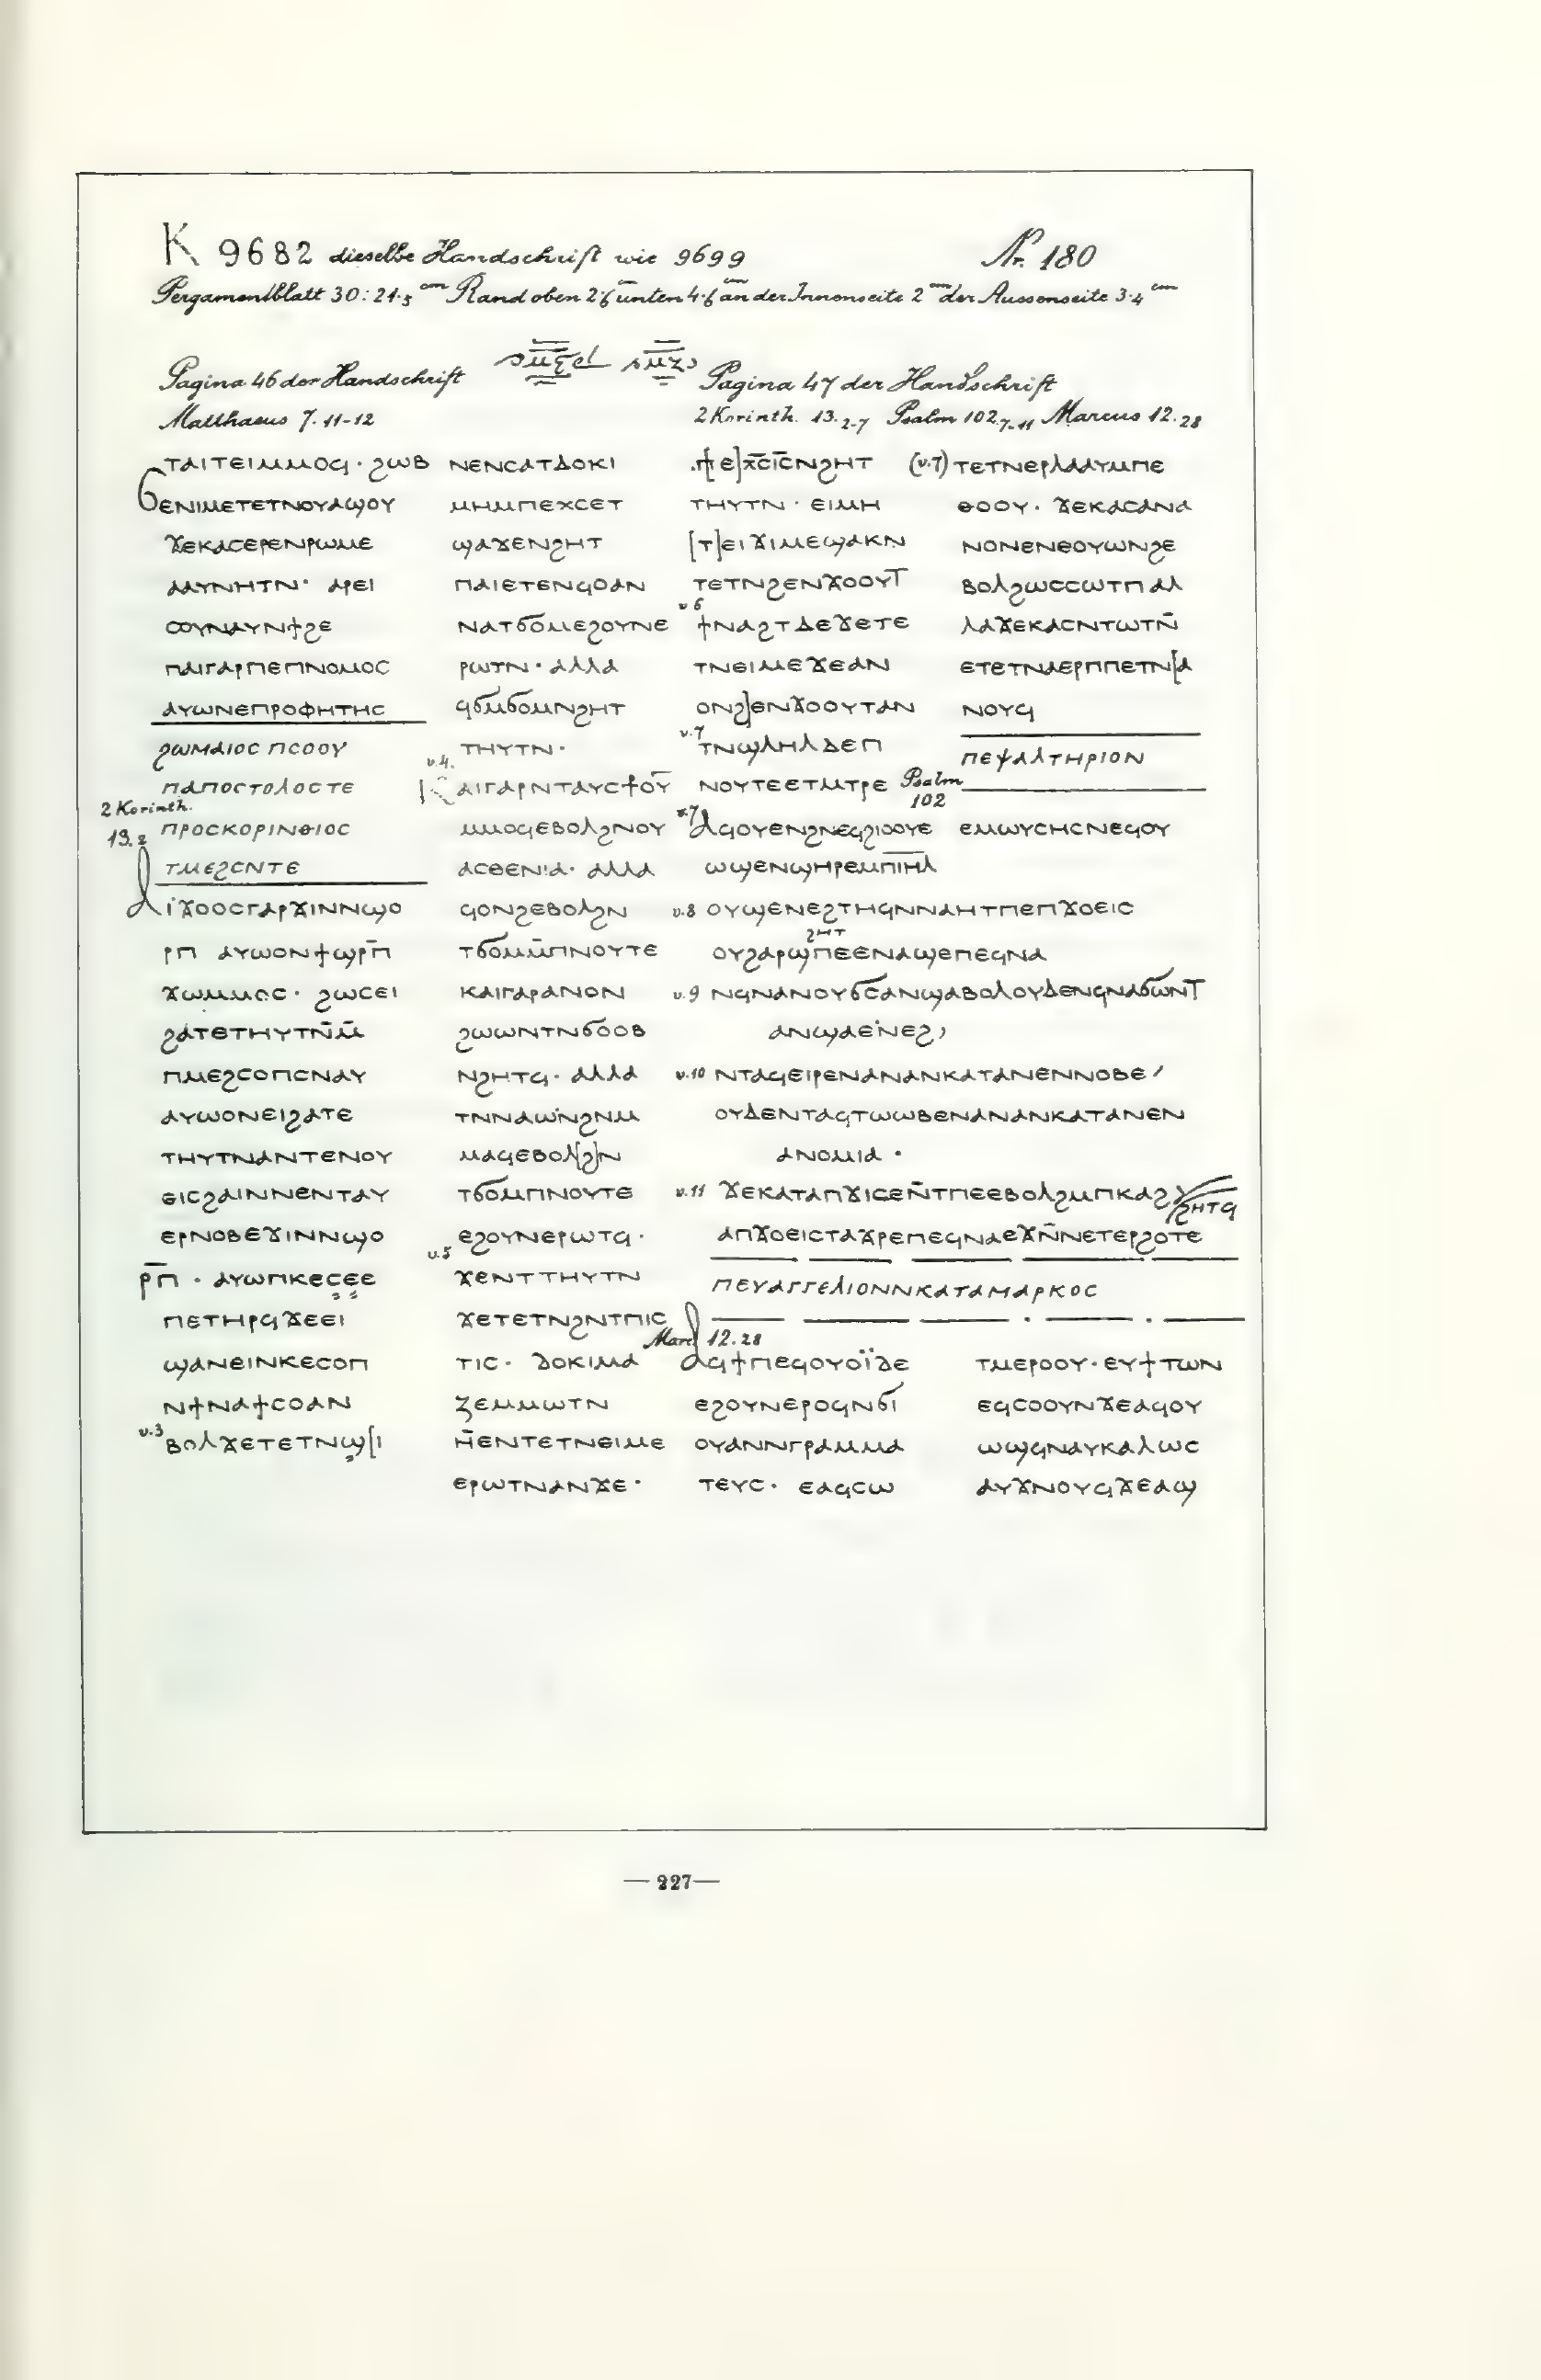 K 9682 dieselbe Handschrift wie 9699 Nr. 180
Pergamentblatt 30:21·5 cm Rand oben 2·6 cm unten 4·6 cm an der Innenseite 2 cm der Aussenseite 3·4 cm
Pagina 46 der Handschrift
Matthaeus 7. 11-12
ⲧⲁⲓⲧⲉⲓⲙⲙⲟϥ · ϩⲱⲃ
ϭⲉⲛⲓⲙⲉⲧⲉⲧⲛⲟⲩⲁϣⲟⲩ
ϫⲉⲕⲁⲥⲉⲣⲉⲛⲣⲱⲙⲉ
ⲁⲁⲩⲛⲏⲧⲛ · ⲁⲣⲉⲓ
ⲥⲟⲩⲛⲁⲩⲛϯϩⲉ
ⲡⲁⲓⲅⲁⲣⲡⲉⲡⲛⲟⲙⲟⲥ
ⲁⲩⲱⲛⲉⲡⲣⲟⲫⲏⲧⲏⲥ
ϩⲱⲙⲁⲓⲟⲥ ⲡⲥⲟⲟⲩ
ⲡⲁⲡⲟⲥⲧⲟⲗⲟⲥ ⲧⲉ
2 Korinth.
13.2
ⲡⲣⲟⲥⲕⲟⲣⲓⲛⲑⲓⲟⲥ
ⲧⲙⲉϩⲥⲛⲧⲉ
ⲁⲓϫⲟⲟⲥⲅⲁⲣϫⲓⲛⲛϣⲟ
ⲣⲡ ⲁⲩⲱⲟⲛϯϣⲣⲡ̄
ϫⲱⲙⲙⲟⲥ · ϩⲱⲥⲉⲓ
ϩⲁⲧⲉⲧⲏⲩⲧⲛ̄ⲙ̄
ⲡⲙⲉϩⲥⲟⲡⲥⲛⲁⲩ
ⲁⲩⲱⲟⲛⲉⲓϩⲁⲧⲉ
ⲧⲏⲩⲧⲛⲁⲛⲧⲉⲛⲟⲩ
ⲉⲓⲥϩⲁⲓⲛⲛⲉⲛⲧⲁⲩ
ⲉⲣⲛⲟⲃⲉϫⲓⲛⲛϣⲟ
ⲣ̄ⲡ · ⲁⲩⲱⲡⲕⲉⲥⲉⲉ
ⲡⲉⲧⲏⲣϥϫⲉⲉⲓ
ϣⲁⲛⲉⲓⲛⲕⲉⲥⲟⲡ
ⲛϯⲛⲁϯⲥⲟⲁⲛ
v.3 ⲃⲟⲗϫⲉⲧⲉⲧⲛϣ[ⲓ
ⲛⲉⲛⲥⲁⲧⲇⲟⲕⲓ
ⲙⲏⲙⲡⲉⲭⲥⲉⲧ
ϣⲁϫⲉⲛϩⲏⲧ
ⲡⲁⲓⲉⲧⲉⲛϥⲟⲁⲛ
ⲛⲁⲧϭⲟⲙⲉϩⲟⲩⲛⲉ
ⲣⲱⲧⲛ · ⲁⲗⲗⲁ
ϥϭⲙϭⲟⲙⲛϩⲏⲧ
ⲧⲏⲩⲧⲛ ·
v.4. ⲕⲁⲓⲅⲁⲣⲛⲧⲁⲩⲥϯⲟⲩ̄
ⲙⲙⲟϥⲉⲃⲟⲗϩⲛⲟⲩ
ⲁⲥⲑⲉⲛⲓⲁ · ⲁⲗⲗⲁ
ϥⲟⲛϩⲉⲃⲟⲗϩⲛ
ⲧϭⲟⲙⲙ̄ⲡⲛⲟⲩⲧⲉ
ⲕⲁⲓⲅⲁⲣⲁⲛⲟⲛ
ϩⲱⲱⲛⲧⲛϭⲟⲟⲃ
ⲛϩⲏⲧϥ · ⲁⲗⲗⲁ
ⲧⲛⲛⲁⲱⲛϩⲛⲙ
ⲙⲁϥⲉⲃⲟⲗ[ϩ]ⲛ
ⲧϭⲟⲙⲡⲛⲟⲩⲧⲉ
ⲉϩⲟⲩⲛⲉⲣⲱⲧϥ ·
v.5 ϫⲉⲛⲧⲧⲏⲩⲧⲛ
ϫⲉⲧⲉⲧⲛϩⲛⲧⲡⲓⲥ
ⲧⲓⲥ · ⲇⲟⲕⲓⲙⲁ
ⲍⲉⲙⲙⲱⲧⲛ
ⲏ̄ⲉⲛⲧⲉⲧⲛⲉⲓⲙⲉ
ⲉⲣⲱⲧⲛⲁⲛϫⲉ ·
Pagina 47 der Handschrift
2 Korinth. 13. 2-7 Psalm 102 7-11 Marcus 12. 28
ⲡⲉ]ⲭ̄ⲥⲓ̄ⲥ̄ⲛϩⲏⲧ
ⲧⲏⲩⲧⲛ · ⲉⲓⲙⲏ
[ⲧ]ⲉⲓϫⲓⲙⲉϣⲁⲕⲛ
ⲧⲉⲧⲛϩⲉⲛϫⲟⲟⲩⲧ
v.6 ϯⲛⲁϩⲧⲇⲉϫⲉⲧⲉ
ⲧⲛⲉⲓⲙⲉϫⲉⲁⲛ
ⲟⲛϩ]ⲉⲛϫⲟⲟⲩⲧⲁⲛ
v.7 ⲧⲛϣⲗⲏⲗⲇⲉⲡ
ⲛⲟⲩⲧⲉⲉⲧⲙⲧⲣⲉ
(v.7) ⲧⲉⲧⲛⲉⲣⲗⲁⲁⲩⲙⲡⲉ
ⲑⲟⲟⲩ · ϫⲉⲕⲁⲥⲁⲛⲁ
ⲛⲟⲛⲉⲛⲉⲑⲟⲩⲱⲛϩⲉ
ⲃⲟⲗϩⲱⲥⲥⲱⲧⲡ ⲁⲗ
ⲗⲁϫⲉⲕⲁⲥⲛⲧⲱⲧⲛ̄
ⲉⲧⲉⲧⲛⲁⲉⲣⲡⲡⲉⲧⲛ[ⲁ
ⲛⲟⲩϥ
ⲡⲉⲯⲁⲗⲧⲏⲣⲓⲟⲛ
Psalm
102
v.7 ⲁϥⲟⲩⲉⲛϩⲛⲉϥϩⲓⲟⲟⲩⲉ ⲉⲙⲱⲩⲥⲏⲥⲛⲉϥⲟⲩ
ⲱϣⲉⲛϣⲏⲣⲉⲙⲡⲓ̄ⲏ̄ⲗ̄
v.8 ⲟⲩϣⲉⲛⲉϩⲧⲏϥⲛⲛⲁⲏⲧⲡⲉⲡϫⲟⲉⲓⲥ
ϩⲏⲧ
ⲟⲩϩⲁⲣϣⲡⲉⲉⲛⲁϣⲉⲡⲉϥⲛⲁ
v.9 ⲛϥⲛⲁⲛⲟⲩϭⲥⲁⲛϣⲁⲃⲟⲗⲟⲩⲇⲉⲛϥⲛⲁϭⲱⲛⲧ
ⲁⲛϣⲁⲉⲛⲉϩ,
v.10 ⲛⲧⲁϥⲉⲓⲣⲉⲛⲁⲛⲁⲛⲕⲁⲧⲁⲛⲉⲛⲛⲟⲃⲉ /
ⲟⲩⲇⲉⲛⲧⲁϥⲧⲱⲱⲃⲉⲛⲁⲛⲁⲛⲕⲁⲧⲁⲛⲉⲛ
ⲁⲛⲟⲙⲓⲁ ·
v.11 ϫⲉⲕⲁⲧⲁⲡϫⲓⲥⲉⲛ̄ⲧⲡⲉⲉⲃⲟⲗϩⲙⲡⲕⲁϩ
ϩⲏⲧϥ
ⲁⲡϫⲟⲉⲓⲥⲧⲁϫⲣⲉⲡⲉϥⲛⲁⲉϫⲛ̄ⲛⲉⲧⲉⲣϩⲟⲧⲉ
ⲡⲉⲩⲁⲅⲅⲉⲗⲓⲟⲛⲛⲕⲁⲧⲁⲙⲁⲣⲕⲟⲥ
Marc 12.28
ⲁϥϯⲡⲉϥⲟⲩⲟⲓ̈ⲇⲉ
ⲉϩⲟⲩⲛⲉⲣⲟϥⲛϭⲓ
ⲟⲩⲁⲛⲛⲅⲣⲁⲙⲙⲁ
ⲧⲉⲩⲥ · ⲉⲁϥⲥⲱ
ⲧⲙⲉⲣⲟⲟⲩ · ⲉⲩϯⲧⲱⲛ
ⲉϥⲥⲟⲟⲩⲛϫⲉⲁϥⲟⲩ
ⲱϣϥⲛⲁⲩⲕⲁⲗⲱⲥ
ⲁⲩϫⲛⲟⲩϥϫⲉⲁϣ
— 227 —